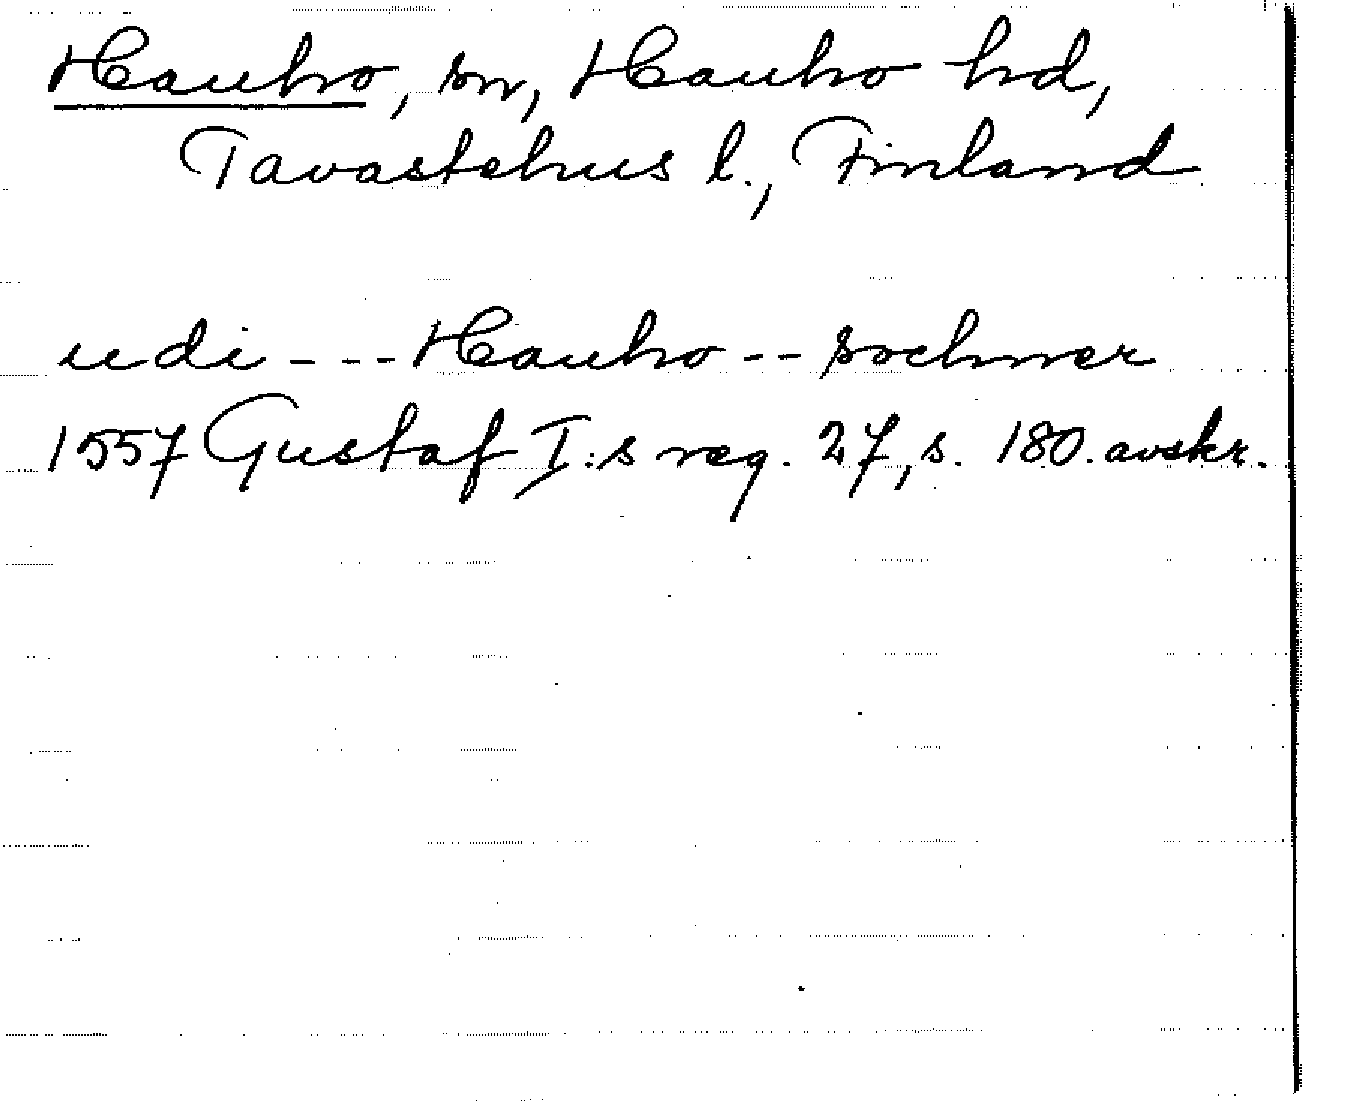 Hauho, sn, Hauho hd,
Tavastehus l., Finland
udi --- Hauho -- sochner
1557 Gustaf I:s reg. 27, s. 180. avskr.